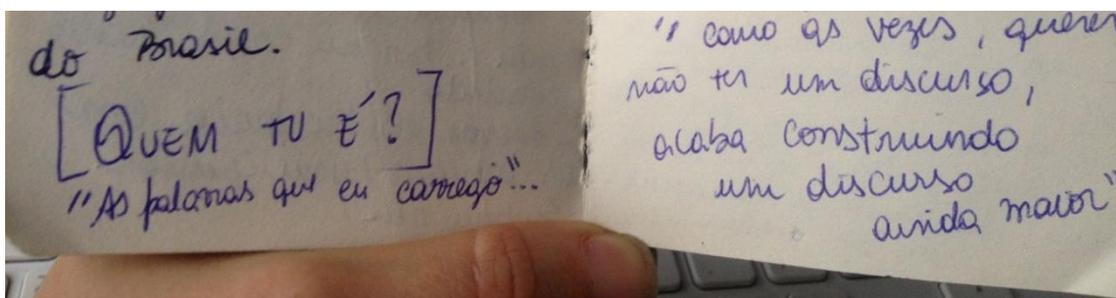 do Brasil.
[QUEM TU É?]
"As palavras que eu carrego"...
" como as vezes, querer
não ter um discurso,
acaba construindo
um discurso
ainda maior"